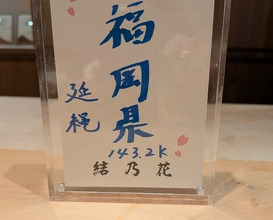 福岡県
延縄
143.2K
結乃花